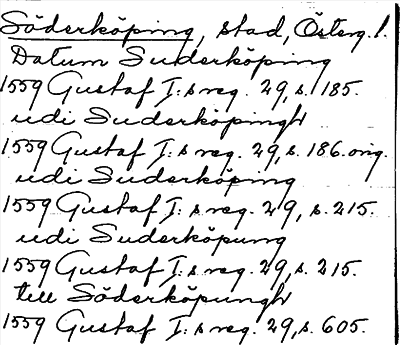 Söderköping, stad, Österg. l.
Datum Suderköping
1559 Gustaf I:s reg. 29, s. 185.
udi Suderköpingh
1559 Gustaf I:s reg. 29, s. 186. orig.
udi Suderköping
1559 Gustaf I:s reg. 29, s. 215.
udi Suderköpung
1559 Gustaf I:s reg. 29, s. 215.
till Söderköpungh
1559 Gustaf I:s reg. 29, s. 605.